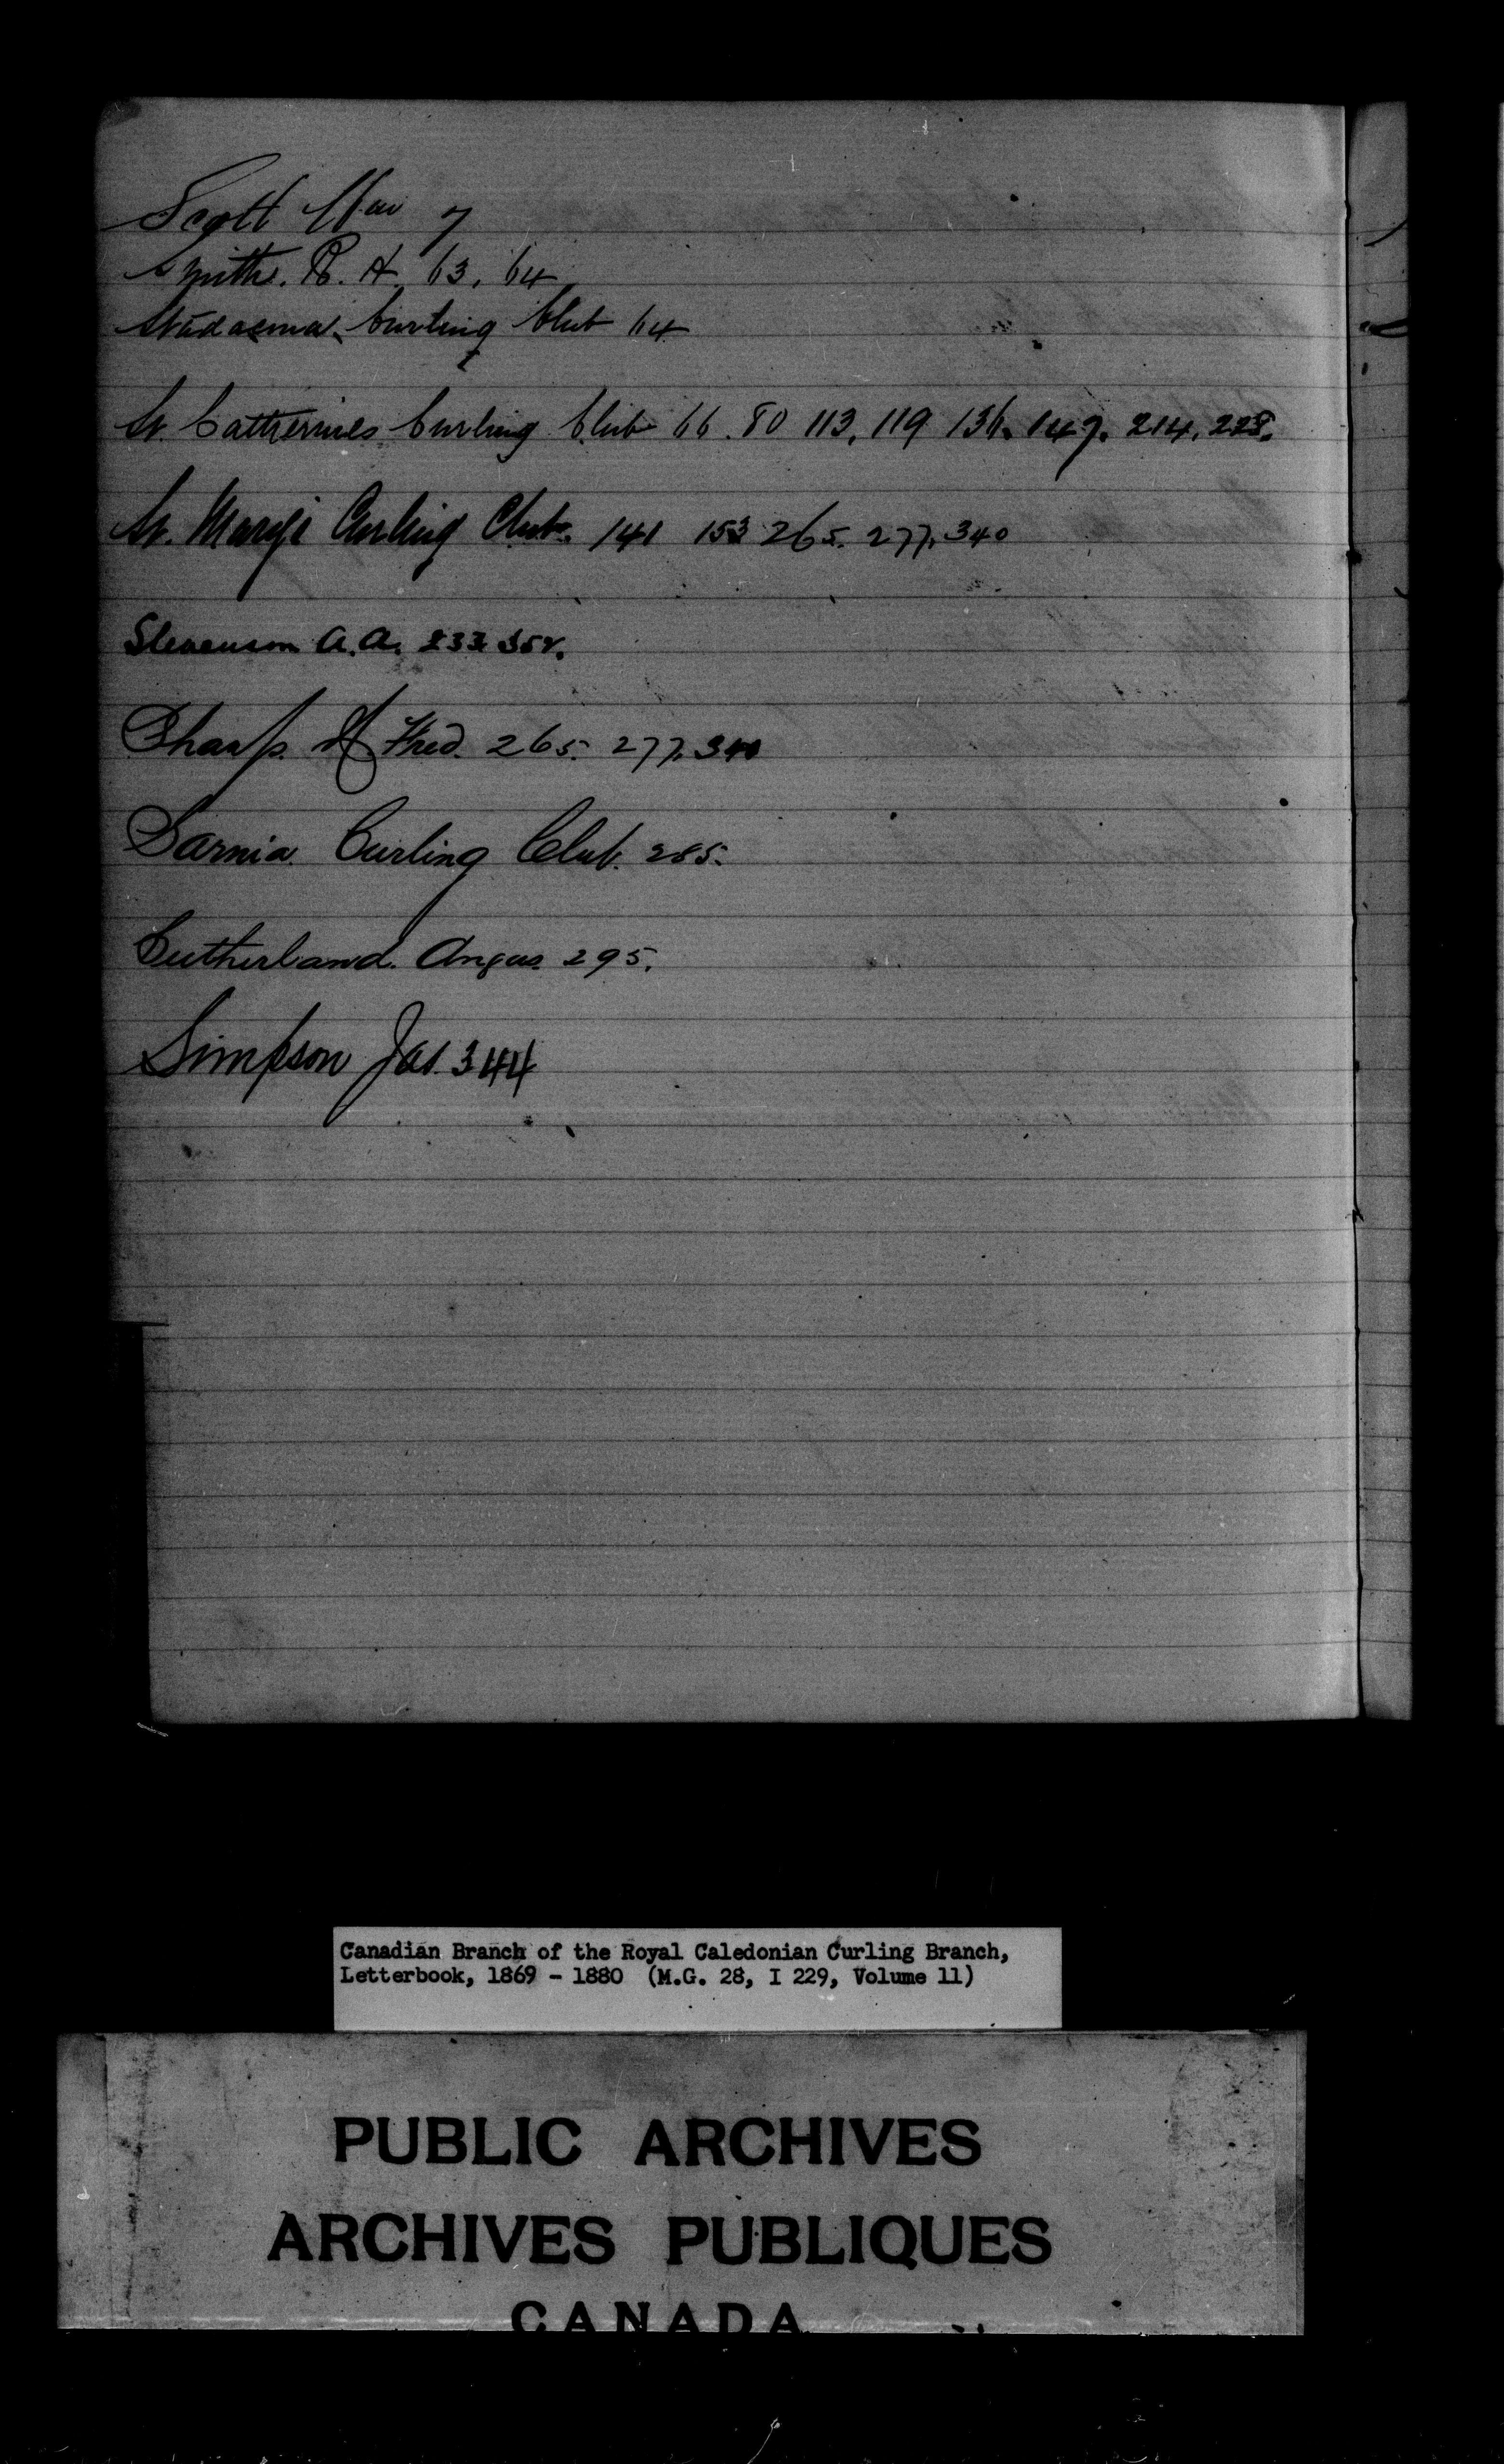 Scott Wm 7
Smith. R. A. 63. 64
Stadacona Curling Club 64
St. Catherines Curling Club 66. 80 113. 119 136. 147. 214. 228.
St. Marys Curling Club. 141 153 265. 277. 340
Stevenson A. A. 233 352.
Sharp. H Fred. 265. 277. 340
Sarnia Curling Club. 285.
Sutherland. Angus. 295.
Simpson Jas. 344
Canadian Branch of the Royal Caledonian Curling Branch,
Letterbook, 1869 - 1880 (M.G. 28, I 229, Volume 11)
PUBLIC ARCHIVES
ARCHIVES PUBLIQUES
CANADA